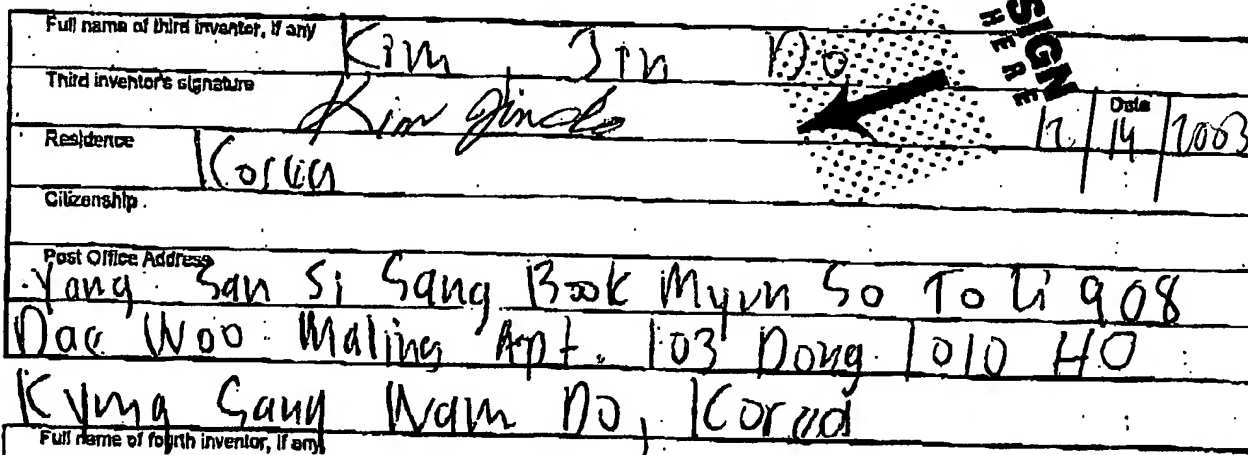 Full name of third inventor, if any Kim Jin Do
SIGN HERE
Third inventor's signature Kim Jindo
Date 12 14 2003
Residence Korea
Citizenship
Post Office Address
Yang San Si Sang Book Myun So To Li 908
Dae Woo Maling Apt. 103 Dong 1010 HO
Kyung Sang Nam DO, Korea
Full name of fourth inventor, if any